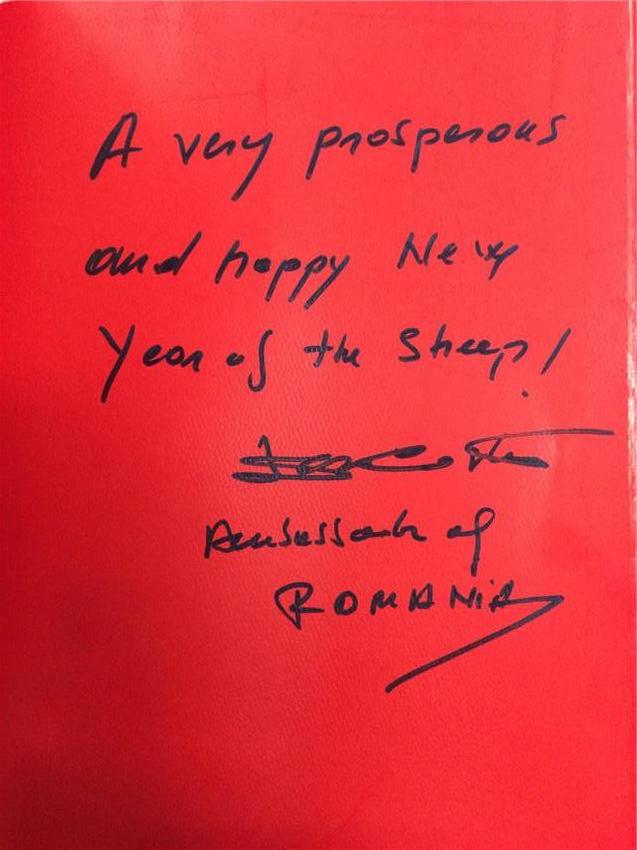 A very prosperous
and happy New
Year of the Sheep!
Ambassador of
ROMANIA